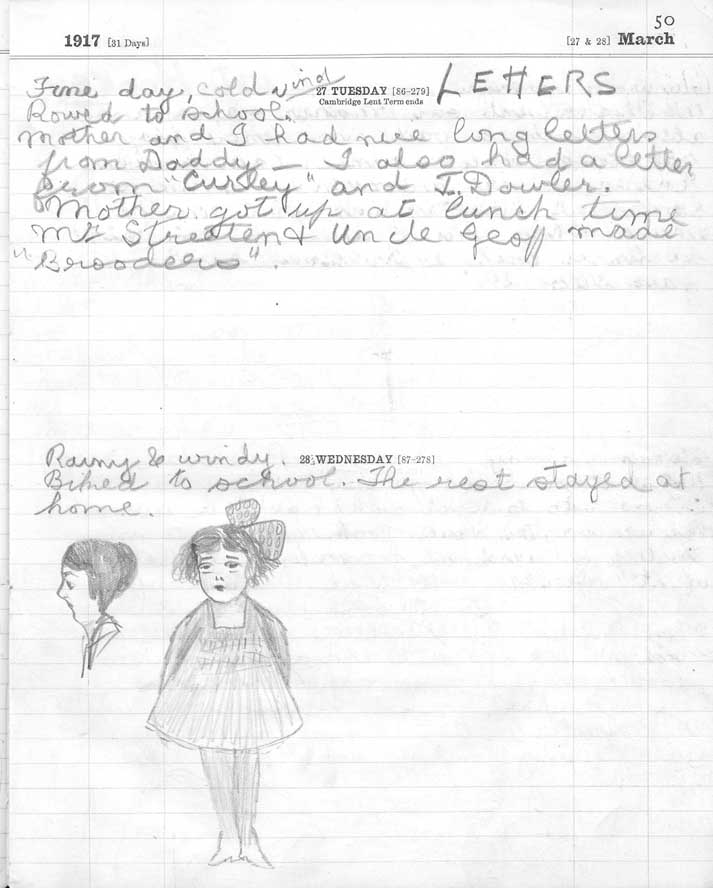 50
1917 [31 Days] [27 & 28] March
Fine day, cold wind 27 TUESDAY [86-279] LETTERS
Cambridge Lent Term ends
Rowed to school.
Mother and I had nice long letters
from Daddy — I also had a letter
from "Curley" and I. Dowler.
Mother got up at lunch time
Mr Streeten & Uncle Geoff made
"Brooders".
Rainy & windy. 28 WEDNESDAY [87-278]
Biked to school. The rest stayed at
home.